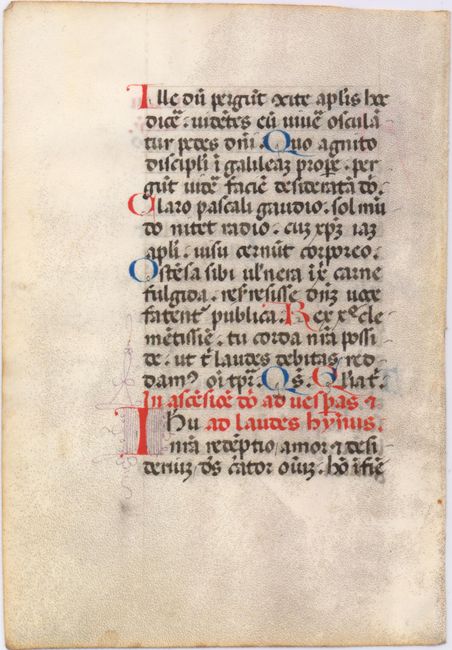 Ille dũ pergũt cite apl'is hec
dicẽ. uidẽtes eũ uiuẽ oscula
tur pedes dñi. Quo agnito
discipli ĩ galileaz prope. per
gũt uidẽ faciẽ desideratã dñ.
Claro pascali gaudio. sol mũ
do nitet radio. cuz xp̃z iaz
apli. uisu cernũt corporeo.
Ostẽsa sibi uulnera ĩ x̃ carne
fulgida. resr̃resisse dñz uoce
fatent' publica. Rex xp̃e cle
mẽtissie. tu corda nr̃a possi
de. ut t̃ laudes debitas red
dam' oĩ tpr̃. Qs̃. Gl'iat̃.
In ascẽsiõe dñ ad uesp̃as ⁊
Ihu ad laudes hỹnus.
nr̃a redẽptio amor ⁊ desi
deriuz d's c̃ator oĩuz. hõ ĩ fiẽ